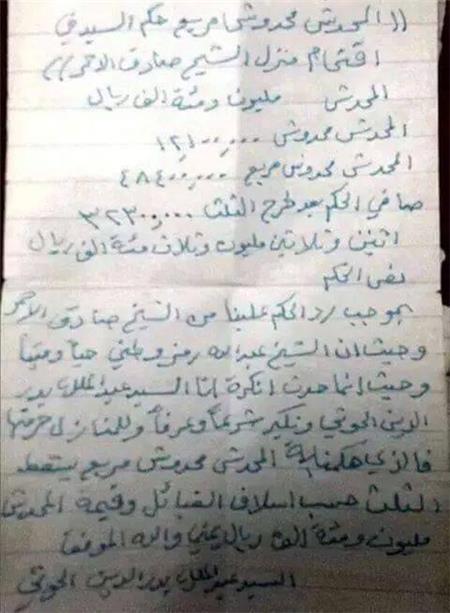 ((المحدش محدوشاً مربع حكم السيد في
اقتحام منزل الشيخ صادق الاحمر))
المحدش مليون ومئة الف ريال
المحدش محدوش ١٢١٠٠,٠٠٠
المحدش محدوش مربع ٤٨٤٠٠,٠٠٠
صافي الحكم بعد طرح الثلث ٣٢٣٠٠,٠٠٠
اتنين وتلاتين مليون وتلات مئة الف ريال
نص الحكم
بموجب رد الحكم علينا من الشيخ صادق الاحمر
وحيث ان الشيخ عبدالله رمز وطني حياً وميتاً
وحيث انما حدث انكرة انا السيد عبدالملك بدر
الدين الحوتي ونكير شرعاً وعرفاً وللمنازل حرمتها
فالذي حكمنا بة المحدش محدوش مربع يسقط
الثلث حسب اسلاف القبائل وقيمة المحدش
مليون ومئة الف ريال يمني والله الموفق
السيد عبدالملك بدر الدين الحوتي